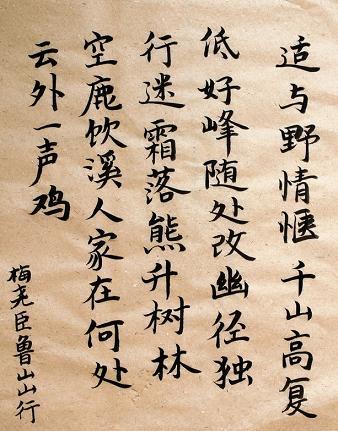 适与野情惬千山高复
低好峰随处改幽径独
行迷霜落熊升树林
空鹿饮溪人家在何处
云外一声鸡
梅尧臣鲁山山行